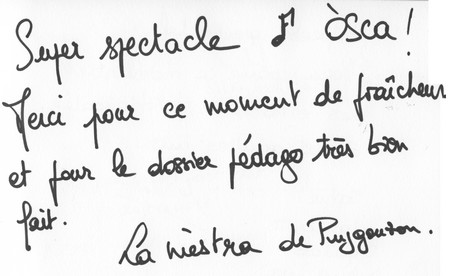 Super spectacle ♪ Òsca !
Merci pour ce moment de fraîcheur
et pour le dossier pédago très bien
fait.
La mèstra de Puygouzon.